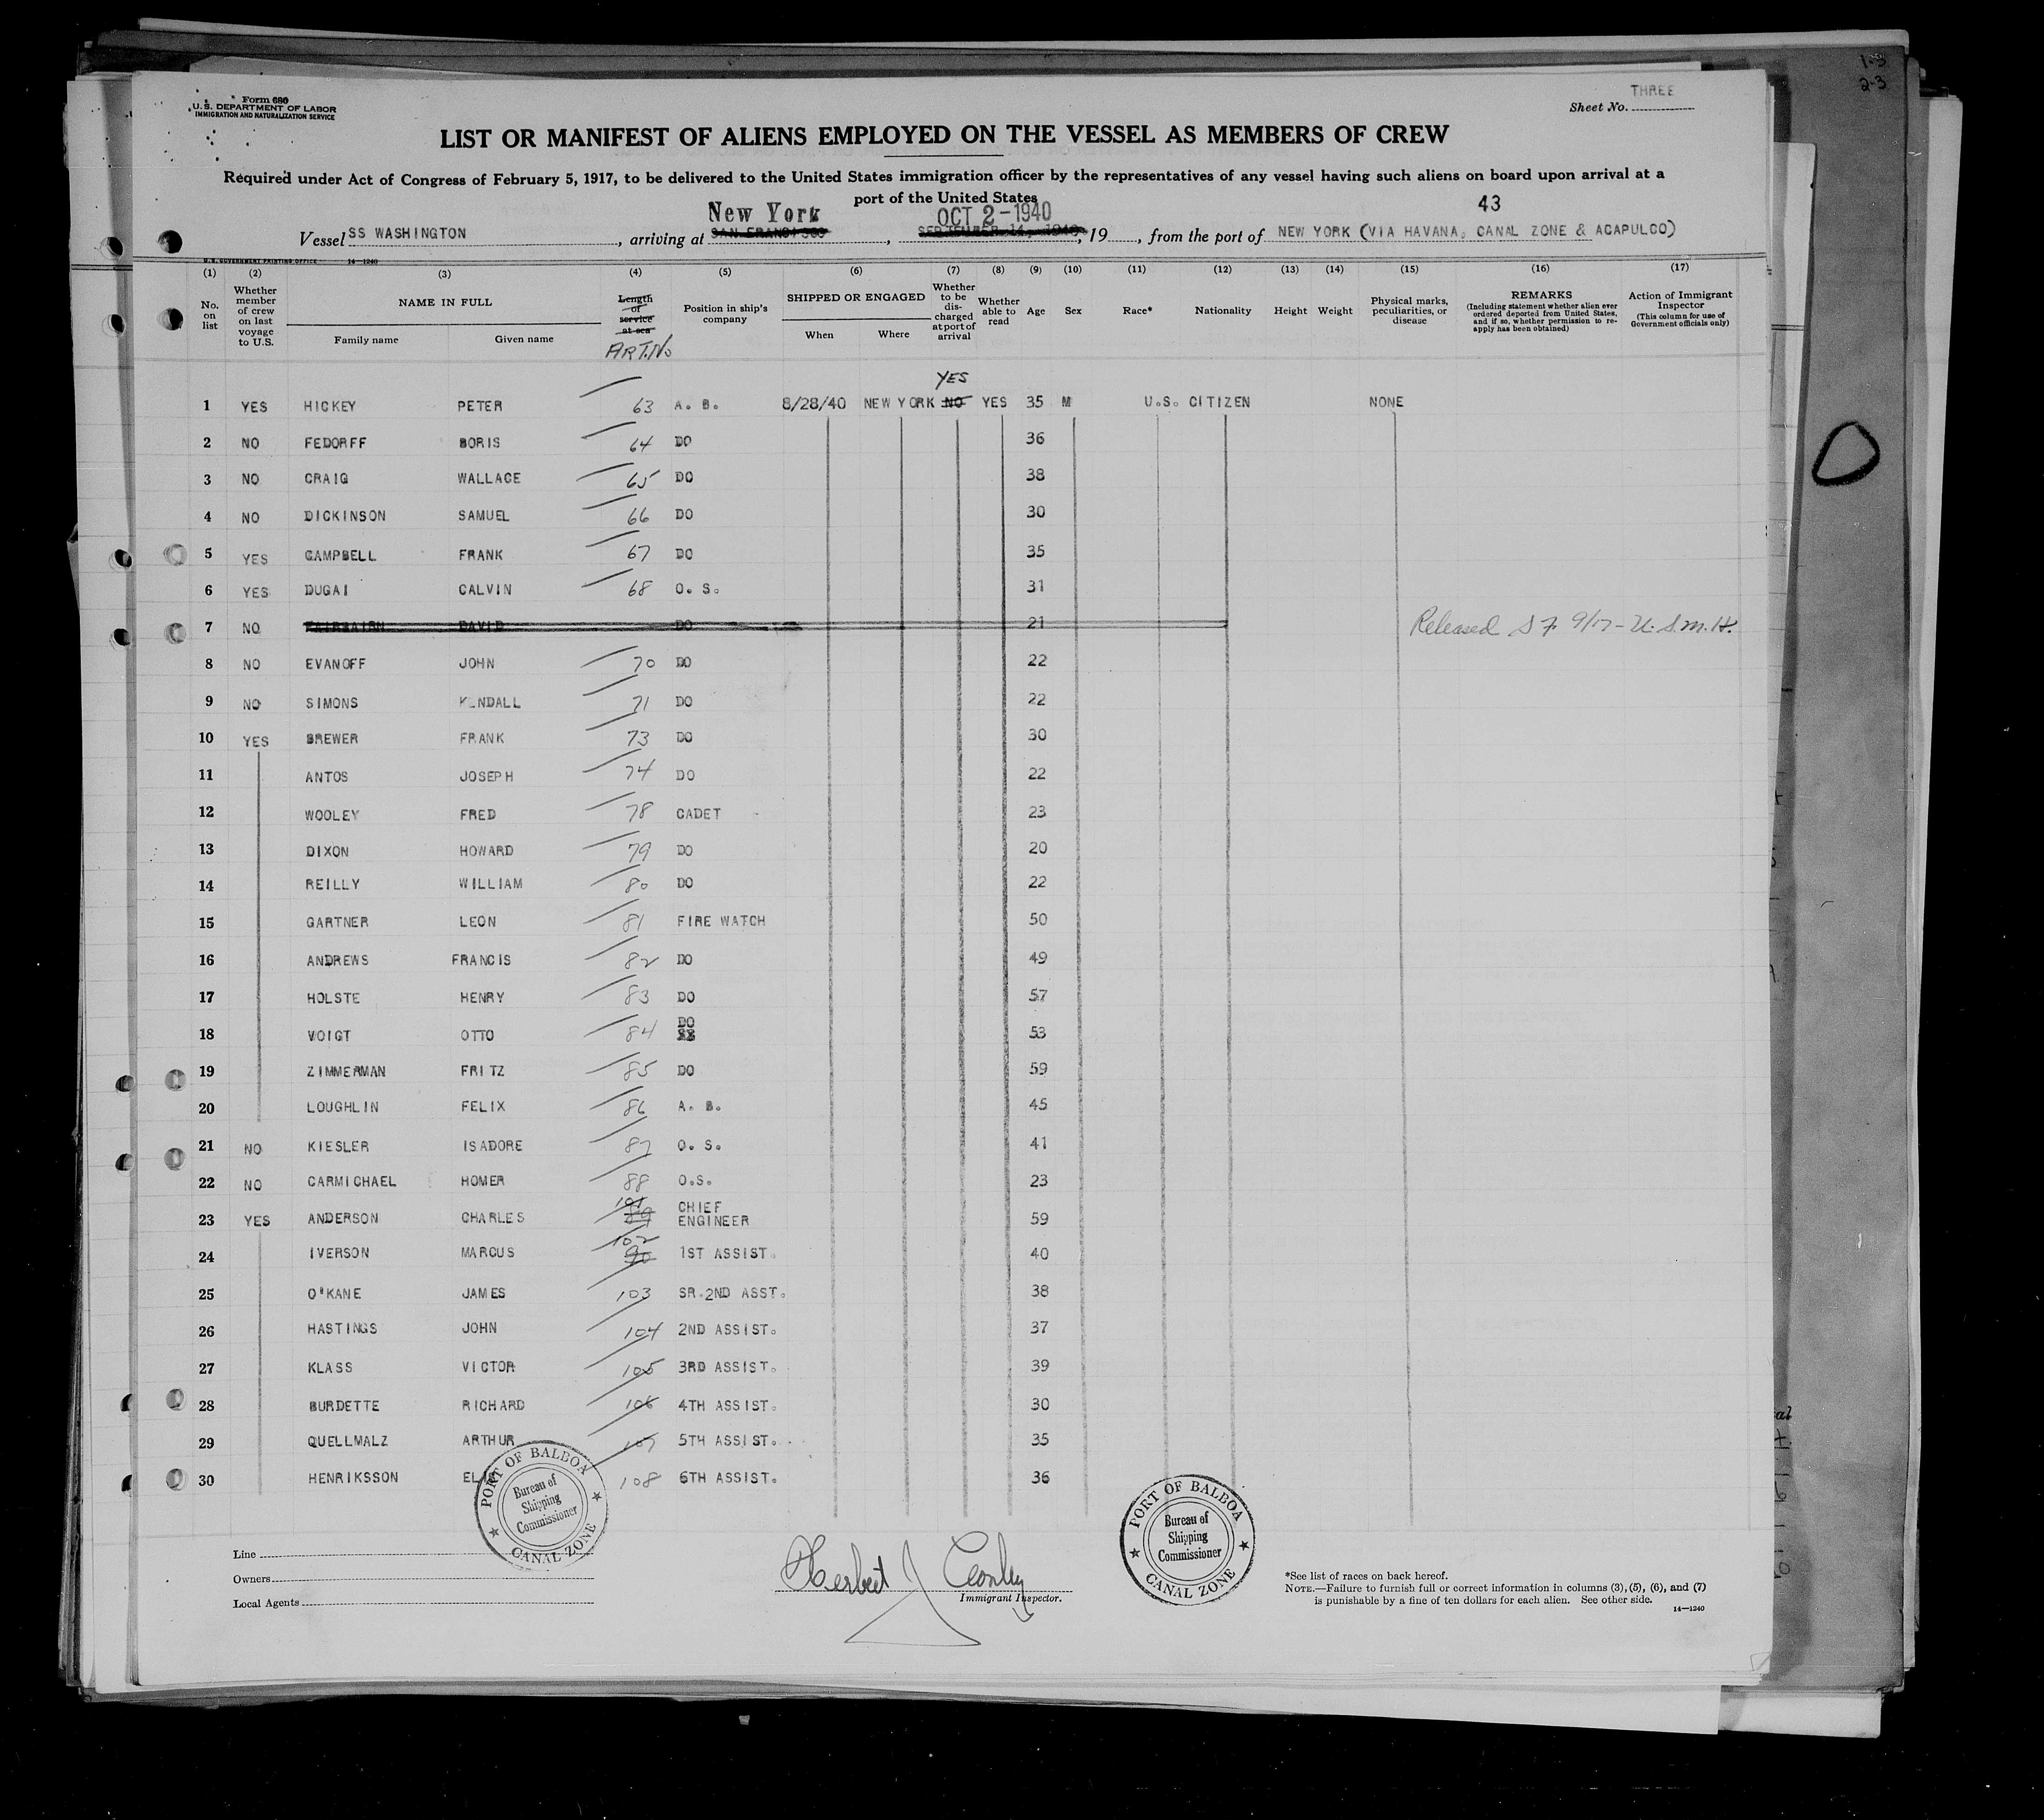 1-3
2-3
Form 680
U.S. DEPARTMENT OF LABOR
IMMIGRATION AND NATURALIZATION SERVICE
THREE
Sheet No.
LIST OR MANIFEST OF ALIENS EMPLOYED ON THE VESSEL AS MEMBERS OF CREW
Required under Act of Congress of February 5, 1917, to be delivered to the United States immigration officer by the representatives of any vessel having such aliens on board upon arrival at a
port of the United States
43
New York OCT 2-1940
Vessel SS WASHINGTON, arriving at SAN FRANCISCO, SEPTEMBER 14, 1940, 19, from the port of NEW YORK (VIA HAVANA, CANAL ZONE & ACAPULCO)
U.S. GOVERNMENT PRINTING OFFICE 14-1240
(1) (2) (3) (4) (5) (6) (7) (8) (9) (10) (11) (12) (13) (14) (15) (16) (17)
No. on list
Whether member of crew on last voyage to U.S.
NAME IN FULL
Family name Given name
Length of service at sea
ART. No
Position in ship's company
SHIPPED OR ENGAGED
When Where
Whether to be discharged at port of arrival
Whether able to read
Age Sex Race* Nationality Height Weight
Physical marks, peculiarities, or disease
REMARKS
(Including statement whether alien ever ordered deported from United States, and if so, whether permission to re-apply has been obtained)
Action of Immigrant Inspector
(This column for use of Government officials only)
YES
1 YES HICKEY PETER 63 A. B. 8/28/40 NEW YORK NO YES 35 M U.S. CITIZEN NONE
2 NO FEDORFF BORIS 64 DO 36
3 NO CRAIG WALLACE 65 DO 38
4 NO DICKINSON SAMUEL 66 DO 30
5 YES CAMPBELL FRANK 67 DO 35
6 YES DUGAI CALVIN 68 O. S. 31
7 NO FAIRBAIRN DAVID DO 21 Released S F. 9/17 - U.S.M.H.
8 NO EVANOFF JOHN 70 DO 22
9 NO SIMONS KENDALL 71 DO 22
10 YES BREWER FRANK 73 DO 30
11 ANTOS JOSEPH 74 DO 22
12 WOOLEY FRED 78 CADET 23
13 DIXON HOWARD 79 DO 20
14 REILLY WILLIAM 80 DO 22
15 GARTNER LEON 81 FIRE WATCH 50
16 ANDREWS FRANCIS 82 DO 49
17 HOLSTE HENRY 83 DO 57
18 VOIGT OTTO 84 DO 53
19 ZIMMERMAN FRITZ 85 DO 59
20 LOUGHLIN FELIX 86 A. B. 45
21 NO KIESLER ISADORE 87 O. S. 41
22 NO CARMICHAEL HOMER 88 O.S. 23
23 YES ANDERSON CHARLES 101 89 CHIEF ENGINEER 59
24 IVERSON MARCUS 102 90 1ST ASSIST. 40
25 O'KANE JAMES 103 SR.2ND ASST. 38
26 HASTINGS JOHN 104 2ND ASSIST. 37
27 KLASS VICTOR 105 3RD ASSIST. 39
28 BURDETTE RICHARD 106 4TH ASSIST. 30
29 QUELLMALZ ARTHUR 107 5TH ASSIST. 35
30 HENRIKSSON 108 6TH ASSIST. 36
PORT OF BALBOA
Bureau of Shipping Commissioner
CANAL ZONE
PORT OF BALBOA
Bureau of Shipping Commissioner
CANAL ZONE
Line
Owners
Local Agents
Herbert J Conley
Immigrant Inspector.
*See list of races on back hereof.
NOTE.—Failure to furnish full or correct information in columns (3), (5), (6), and (7)
is punishable by a fine of ten dollars for each alien. See other side.
14—1240